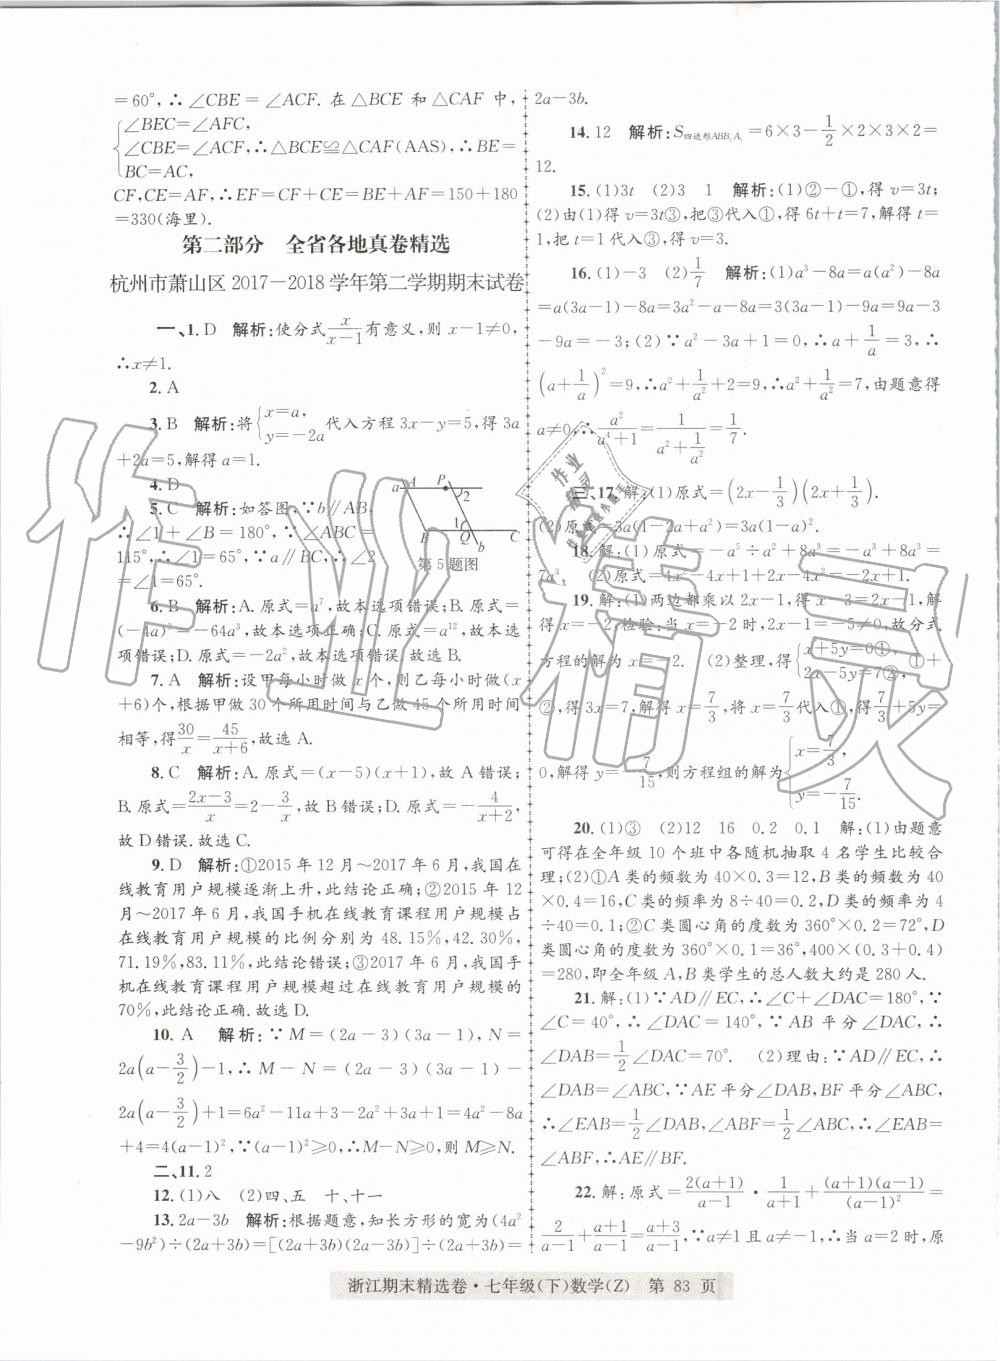 =60°,∴∠CBE=∠ACF.在△BCE 和△CAF 中,
∠BEC=∠AFC,
∠CBE=∠ACF,∴△BCE≌△CAF(AAS),∴BE=
BC=AC,
CF,CE=AF,∴EF=CF+CE=BE+AF=150+180
=330(海里).
第二部分 全省各地真卷精选
杭州市萧山区 2017-2018 学年第二学期期末试卷
一、1. D 解析:使分式x/(x-1)有意义,则 x-1≠0,
∴x≠1.
2. A
3. B 解析:将{x=a, y=-2a 代入方程 3x-y=5,得 3a
+2a=5,解得 a=1.
4. D
5. C 解析:如答图,∵b∥AB,
∴∠1+∠B=180°,∵∠ABC=
115°,∴∠1=65°,∵a∥BC,∴∠2
=∠1=65°.
a A P 2 1 B Q C b
第 5 题图
6. B 解析:A. 原式=a⁷,故本选项错误;B. 原式=
(-4a)³=-64a³,故本选项正确;C. 原式=a¹²,故本选
项错误;D. 原式=-2a²,故本选项错误.故选 B.
7. A 解析:设甲每小时做 x 个,则乙每小时做(x
+6)个,根据甲做 30 个所用时间与乙做 45 个所用时间
相等,得30/x=45/(x+6),故选 A.
8. C 解析:A. 原式=(x-5)(x+1),故 A 错误;
B. 原式=(2x-3)/x=2-3/x,故 B 错误;D. 原式=-4/(x+2),
故 D 错误.故选 C.
9. D 解析:①2015 年 12 月~2017 年 6 月,我国在
线教育用户规模逐渐上升,此结论正确;②2015 年 12
月~2017 年 6 月,我国手机在线教育课程用户规模占
在线教育用户规模的比例分别为 48.15%,42.30%,
71.19%,83.11%,此结论错误;③2017 年 6 月,我国手
机在线教育课程用户规模超过在线教育用户规模的
70%,此结论正确.故选 D.
10. A 解析:∵M=(2a-3)(3a-1),N=
2a(a-3/2)-1,∴M-N=(2a-3)(3a-1)-
2a(a-3/2)+1=6a²-11a+3-2a²+3a+1=4a²-8a
+4=4(a-1)²,∵(a-1)²≥0,∴M-N≥0,则 M≥N.
二、11. 2
12. (1)八 (2)四、五 十、十一
13. 2a-3b 解析:根据题意,知长方形的宽为(4a²
-9b²)÷(2a+3b)=[(2a+3b)(2a-3b)]÷(2a+3b)=
2a-3b.
14. 12 解析:S四边形ABB₁A₁=6×3-1/2×2×3×2=
12.
15. (1)3t (2)3 1 解析:(1)②-①,得 v=3t;
(2)由(1)得 v=3t③,把③代入①,得 6t+t=7,解得 t=
1,把 t=1 代入③,得 v=3.
16. (1)-3 (2)1/7 解析:(1)a³-8a=a(a²)-8a
=a(3a-1)-8a=3a²-9a=3(3a-1)-9a=9a-3
-9a=-3;(2)∵a²-3a+1=0,∴a+1/a=3,∴
(a+1/a)²=9,∴a²+1/a²+2=9,∴a²+1/a²=7,由题意得
a≠0,∴a²/(a⁴+1)=1/(a²+1/a²)=1/7.
三、17. 解:(1)原式=(2x-1/3)(2x+1/3).
(2)原式=3a(1-2a+a²)=3a(1-a)².
18. 解:(1)原式=-a⁵÷a²+8a³=-a³+8a³=
7a³. (2)原式=4x²-4x+1+2x-4x²=-2x+1.
19. 解:(1)两边都乘以 2x-1,得 x-3=4x+3,解
得 x=-2.检验:当 x=-2 时,2x-1=-5≠0,故分式
方程的解为 x=-2. (2)整理,得{x+5y=0①, 2x-5y=7②, ①+
②,得 3x=7,解得 x=7/3,将 x=7/3代入①,得7/3+5y=
0,解得 y=-7/15,则方程组的解为{x=7/3, y=-7/15.
20. (1)③ (2)12 16 0.2 0.1 解:(1)由题意
可得在全年级 10 个班中各随机抽取 4 名学生比较合
理;(2)①A 类的频数为 40×0.3=12,B 类的频数为 40
×0.4=16,C 类的频率为 8÷40=0.2,D 类的频率为 4
÷40=0.1;②C 类圆心角的度数为 360°×0.2=72°,D
类圆心角的度数为 360°×0.1=36°,400×(0.3+0.4)
=280,即全年级 A,B 类学生的总人数大约是 280 人.
21. 解:(1)∵AD∥EC,∴∠C+∠DAC=180°,∵
∠C=40°,∴∠DAC=140°,∵AB 平分∠DAC,∴
∠DAB=1/2∠DAC=70°. (2)理由:∵AD∥EC,∴
∠DAB=∠ABC,∵AE 平分∠DAB,BF 平分∠ABC,
∴∠EAB=1/2∠DAB,∠ABF=1/2∠ABC,∴∠EAB=
∠ABF,∴AE∥BF.
22. 解:原式=2(a+1)/(a-1)·1/(a+1)+(a+1)(a-1)/(a-1)²=
2/(a-1)+(a+1)/(a-1)=(a+3)/(a-1),∵a≠1 且 a≠-1,∴当 a=2 时,原
浙江期末精选卷·七年级(下)数学(Z) 第 83 页
作业精灵